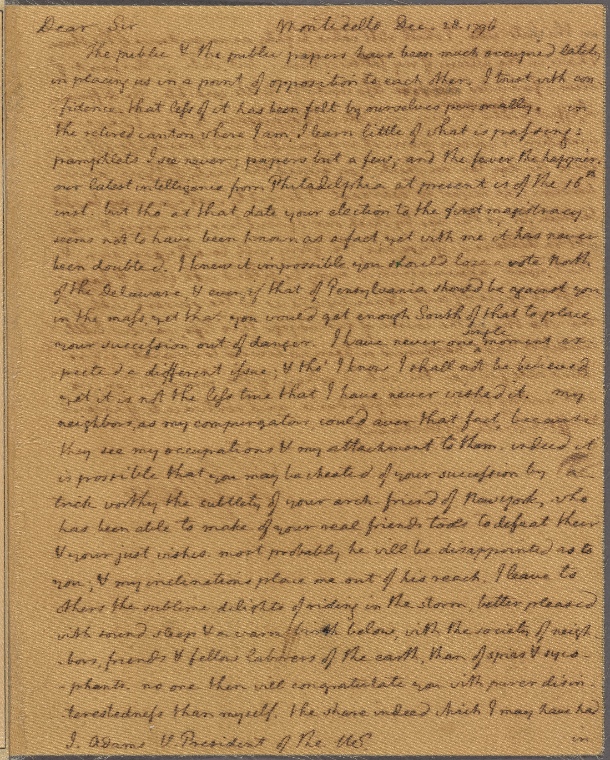 Dear Sir Monticello Dec. 28. 1796
The public & the public papers have been much occupied lately
in placing us in a point of opposition to each other. I trust with con
fidence that less of it has been felt by ourselves personally. in
the retired canton where I am, I learn little of what is passing:
pamphlets I see never; papers but a few; and the fewer the happier.
our latest intelligence from Philadelphia at present is of the 16th
inst. but tho' at that date your election to the first magistracy
seems not to have been known as a fact, yet with me it has never
been doubted. I knew it impossible you should lose a vote North
of the Delaware, & even if that of Pensylvania should be against you
in the mass, yet that you would get enough South of that to place
your succession out of danger. I have never one single moment ex
pected a different issue; & tho' I know I shall not be believed
yet it is not the less true that I have never wished it. my
neighbors, as my compurgators, could aver that fact, because
they see my occupations & my attachment to them. indeed it
is possible that you may be cheated of your succession by a
trick worthy the subtlety of your arch-friend of New York, who
has been able to make of your real friends tools to defeat their
& your just wishes. most probably he will be disappointed as to
you; & my inclinations place me out of his reach. I leave to
others the sublime delights of riding in the storm, better pleased
with sound sleep & a warm birth below, with the society of neigh
bors, friends & fellow laborers of the earth, than of spies & syco-
-phants. no one then will congratulate you with purer disin
terestedness than myself. the share indeed which I may have had
J. Adams V. President of the U.S. in